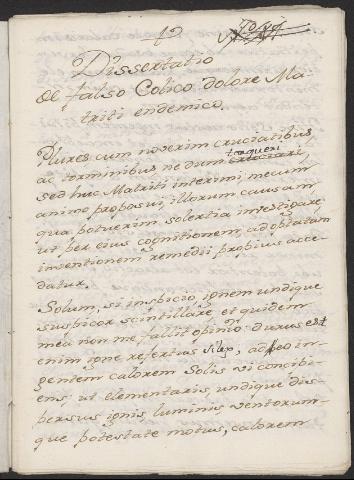 Dissertatio
de falso Colico dolore Ma-
triti endemico.
Plures cum noverim cruciatibus
ac torminibus ne dum torqueri,
sed huc Matriti interimi mecum
animo proposui, illorum causam,
qua potuerim solertia investigare
ut per eius cognitionem, ad optatam
inventionem remedii propius acce-
datur.
Solum, si inspicio, ignem undique
suspicor scintillare et quidem
mea non me fallit opinio: durus est
enim igne refertus silex, adeo in-
gentem calorem Solis vi concibi-
ens, ut elementaris, undique dis-
persus ignis, luminis, ventorum-
que potestate motus, calorem